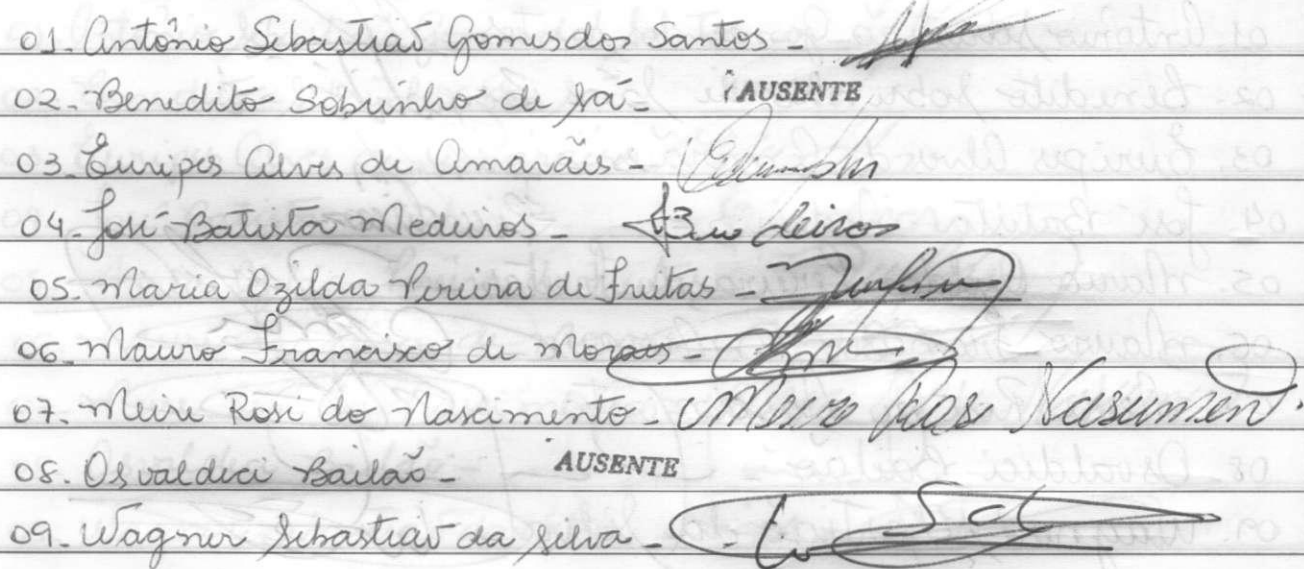 01. Antônio Sebastião Gomes dos Santos -
02. Benedito Sobrinho de Sá - AUSENTE
03. Euripes Alves de Amarães -
04. José Batista Medeiros - JBMedeiros
05. Maria Ozilda Pereira de Freitas -
06. Mauro Francisco de Morais -
07. Meire Rosi do Nascimento - Meire Rosi Nasciment.
08. Osvaldeci Bailão - AUSENTE
09. Wagner Sebastião da Silva -